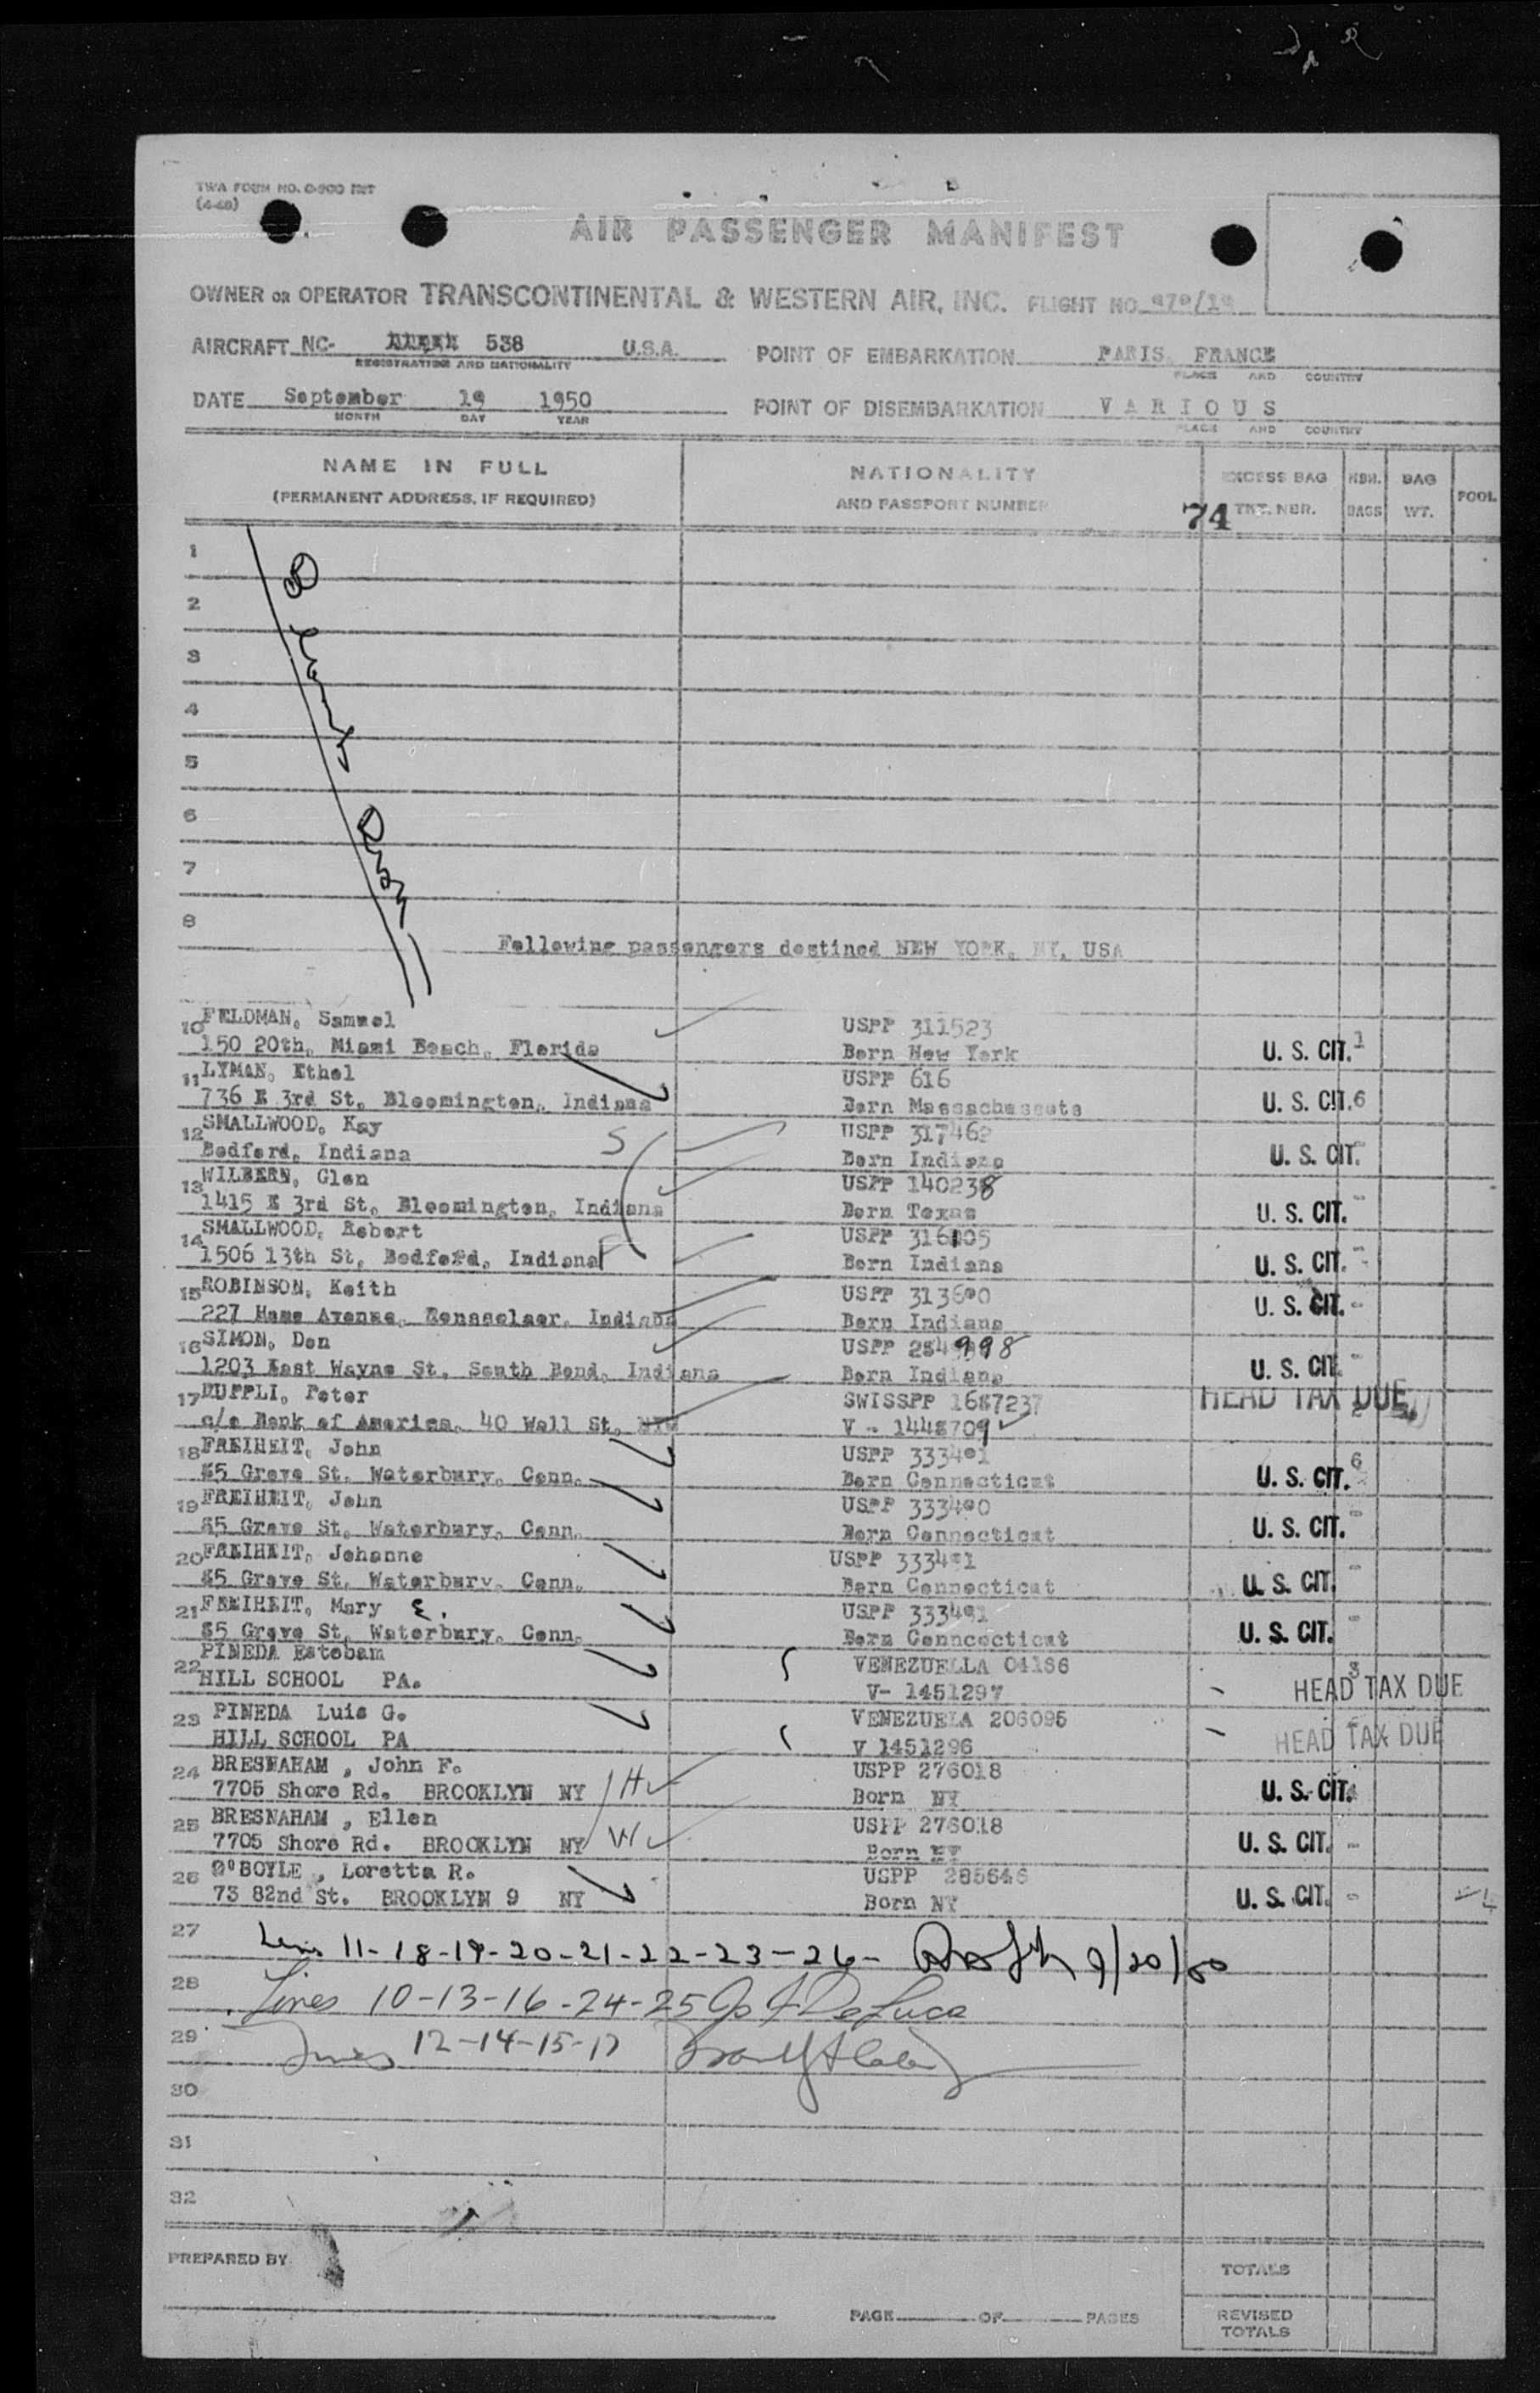 TWA FORM NO. O-900 INT
(4-48)
AIR PASSENGER MANIFEST
OWNER OR OPERATOR TRANSCONTINENTAL & WESTERN AIR, INC. FLIGHT NO. 970/19
AIRCRAFT NC- 538 U.S.A. POINT OF EMBARKATION PARIS, FRANCE
REGISTRATION AND NATIONALITY PLACE AND COUNTRY
DATE September 19 1950 POINT OF DISEMBARKATION VARIOUS
MONTH DAY YEAR PLACE AND COUNTRY
NAME IN FULL NATIONALITY EXCESS BAG NBR. BAG POOL
(PERMANENT ADDRESS, IF REQUIRED) AND PASSPORT NUMBER 74 TKT. NBR. BAGS WT.
1
2
3
4
5
6
7
8
Following passengers destined NEW YORK, NY, USA
10 FELDMAN, Samuel USPP 311523
150 20th, Miami Beach, Florida Born New York U. S. CIT. 1
11 LYMAN, Ethel USPP 616
736 E 3rd St, Bloomington, Indiana Born Massachussets U. S. CIT. 6
12 SMALLWOOD, Kay USPP 317462
Bedford, Indiana S Born Indiana U. S. CIT. -
13 WILBERN, Glen USPP 140238
1415 E 3rd St, Bloomington, Indiana Born Texas U. S. CIT. -
14 SMALLWOOD, Robert USPP 316105
1506 13th St, Bedford, Indiana Born Indiana U. S. CIT. -
15 ROBINSON, Keith USPP 313690
227 Home Avenue, Rensselaer, Indiana Born Indiana U. S. CIT. -
16 SIMON, Don USPP 254998
1203 East Wayne St, South Bend, Indiana Born Indiana U. S. CIT. -
17 RUPPLI, Peter SWISSPP 1687237 HEAD TAX DUE
c/o Bank of America, 40 Wall St, NYC V - 1448709
18 FREIHEIT, John USPP 333491
85 Grove St, Waterbury, Conn. Born Connecticut U. S. CIT. 6
19 FREIHEIT, John USPP 333490
85 Grove St, Waterbury, Conn. Born Connecticut U. S. CIT. -
20 FREIHEIT, Johanne USPP 333491
85 Grove St, Waterbury, Conn. Born Connecticut U. S. CIT. -
21 FREIHEIT, Mary E. USPP 333491
85 Grove St, Waterbury, Conn. Born Conncecticut U. S. CIT. -
22 PINEDA Estebam VENEZUELLA 04186
HILL SCHOOL PA. V- 1451297 - HEAD TAX DUE 3
23 PINEDA Luis G. VENEZUELA 206095
HILL SCHOOL PA V 1451296 - HEAD TAX DUE
24 BRESNAHAM , John F. USPP 276018
7705 Shore Rd. BROOKLYN NY H Born NY U. S. CIT.
25 BRESNAHAM , Ellen USPP 276018
7705 Shore Rd. BROOKLYN NY W Born NY U. S. CIT. -
26 O'BOYLE , Loretta R. USPP 285646
73 82nd St. BROOKLYN 9 NY Born NY U. S. CIT. -
27 11-18-19-20-21-22-23-26- 9/20/50
28 Lines 10-13-16-24-25 DeLuca
29 Lines 12-14-15-17
30
31
32
PREPARED BY
TOTALS
PAGE OF PAGES REVISED
TOTALS